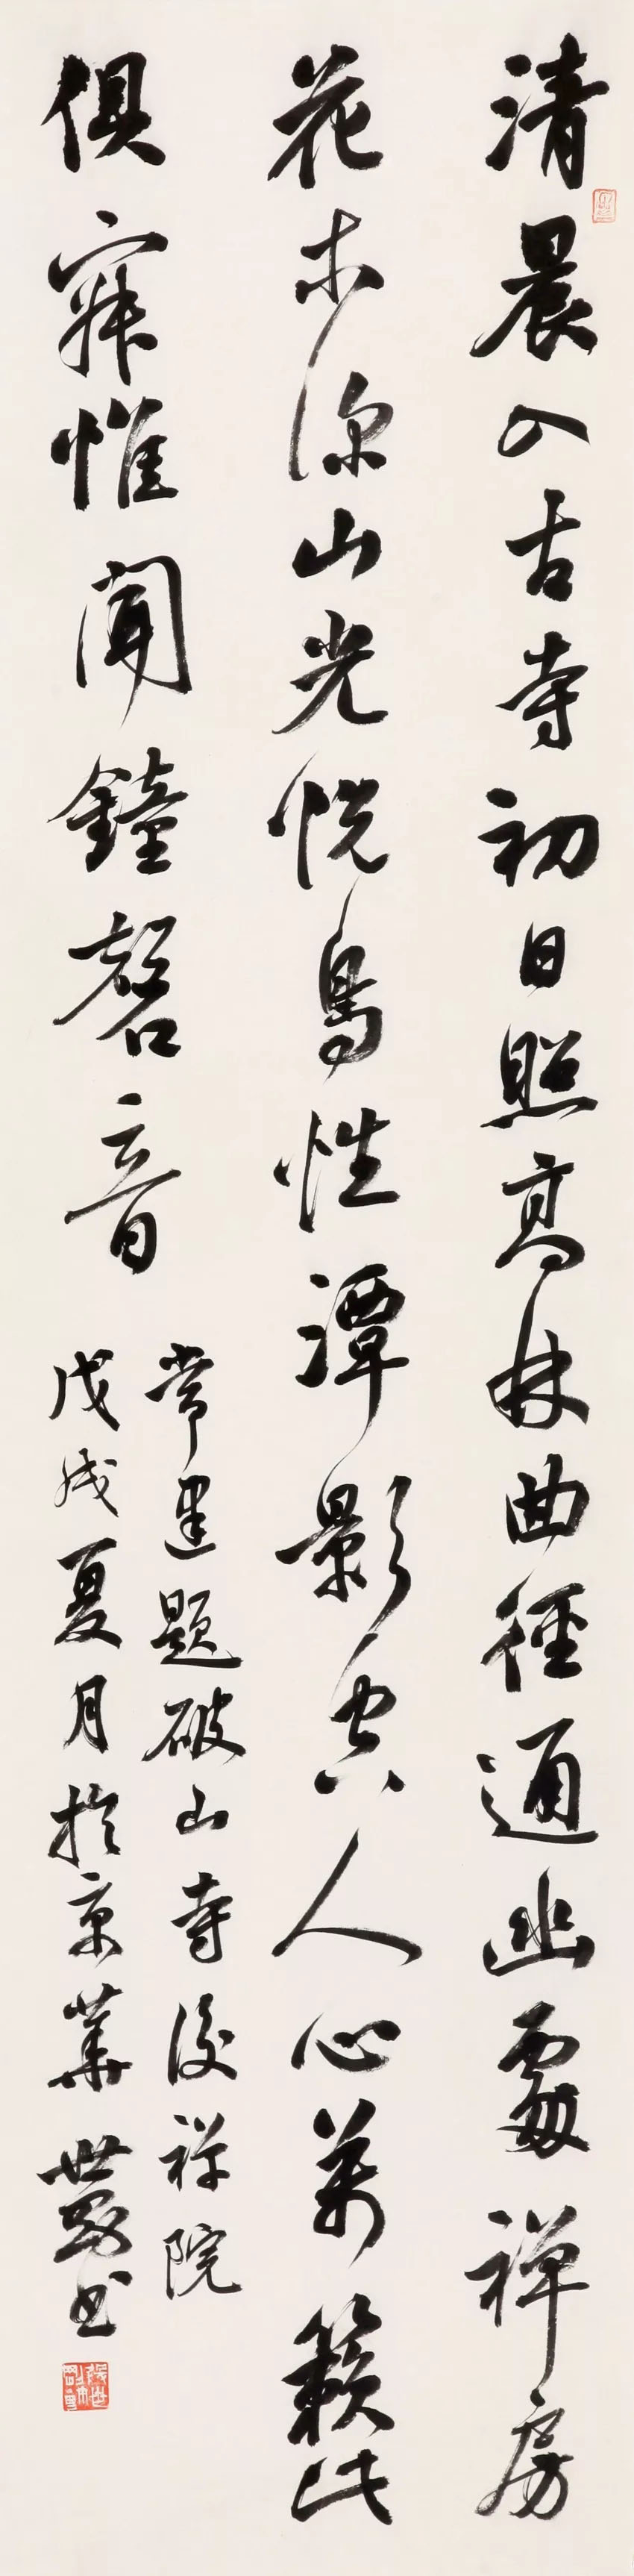 清晨入古寺初日照高林曲徑通幽處禪房
花木深山光悅鳥性潭影空人心萬籟此
俱寂惟聞鐘磬音
常建題破山寺後禅院
戊戌夏月於京華世
书